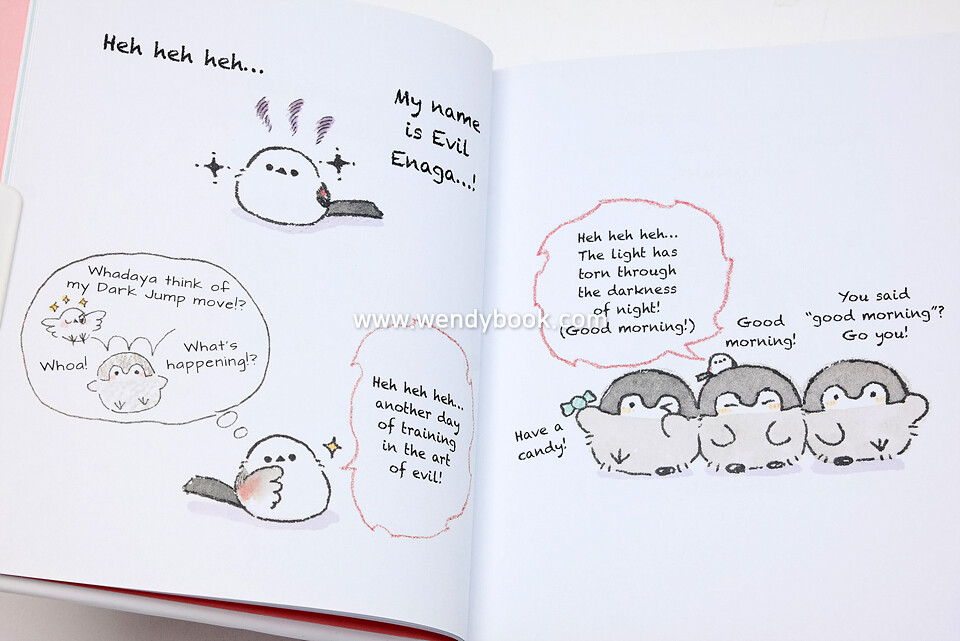 Heh heh heh...
My name
is Evil
Enaga...!
Whadaya think of
my Dark Jump move!?
Whoa!
What's
happening!?
Heh heh heh...
another day
of training
in the art
of evil!
www.wendybook.com
Heh heh heh...
The light has
torn through
the darkness
of night!
(Good morning!)
Good
morning!
You said
“good morning”?
Go you!
Have a
candy!